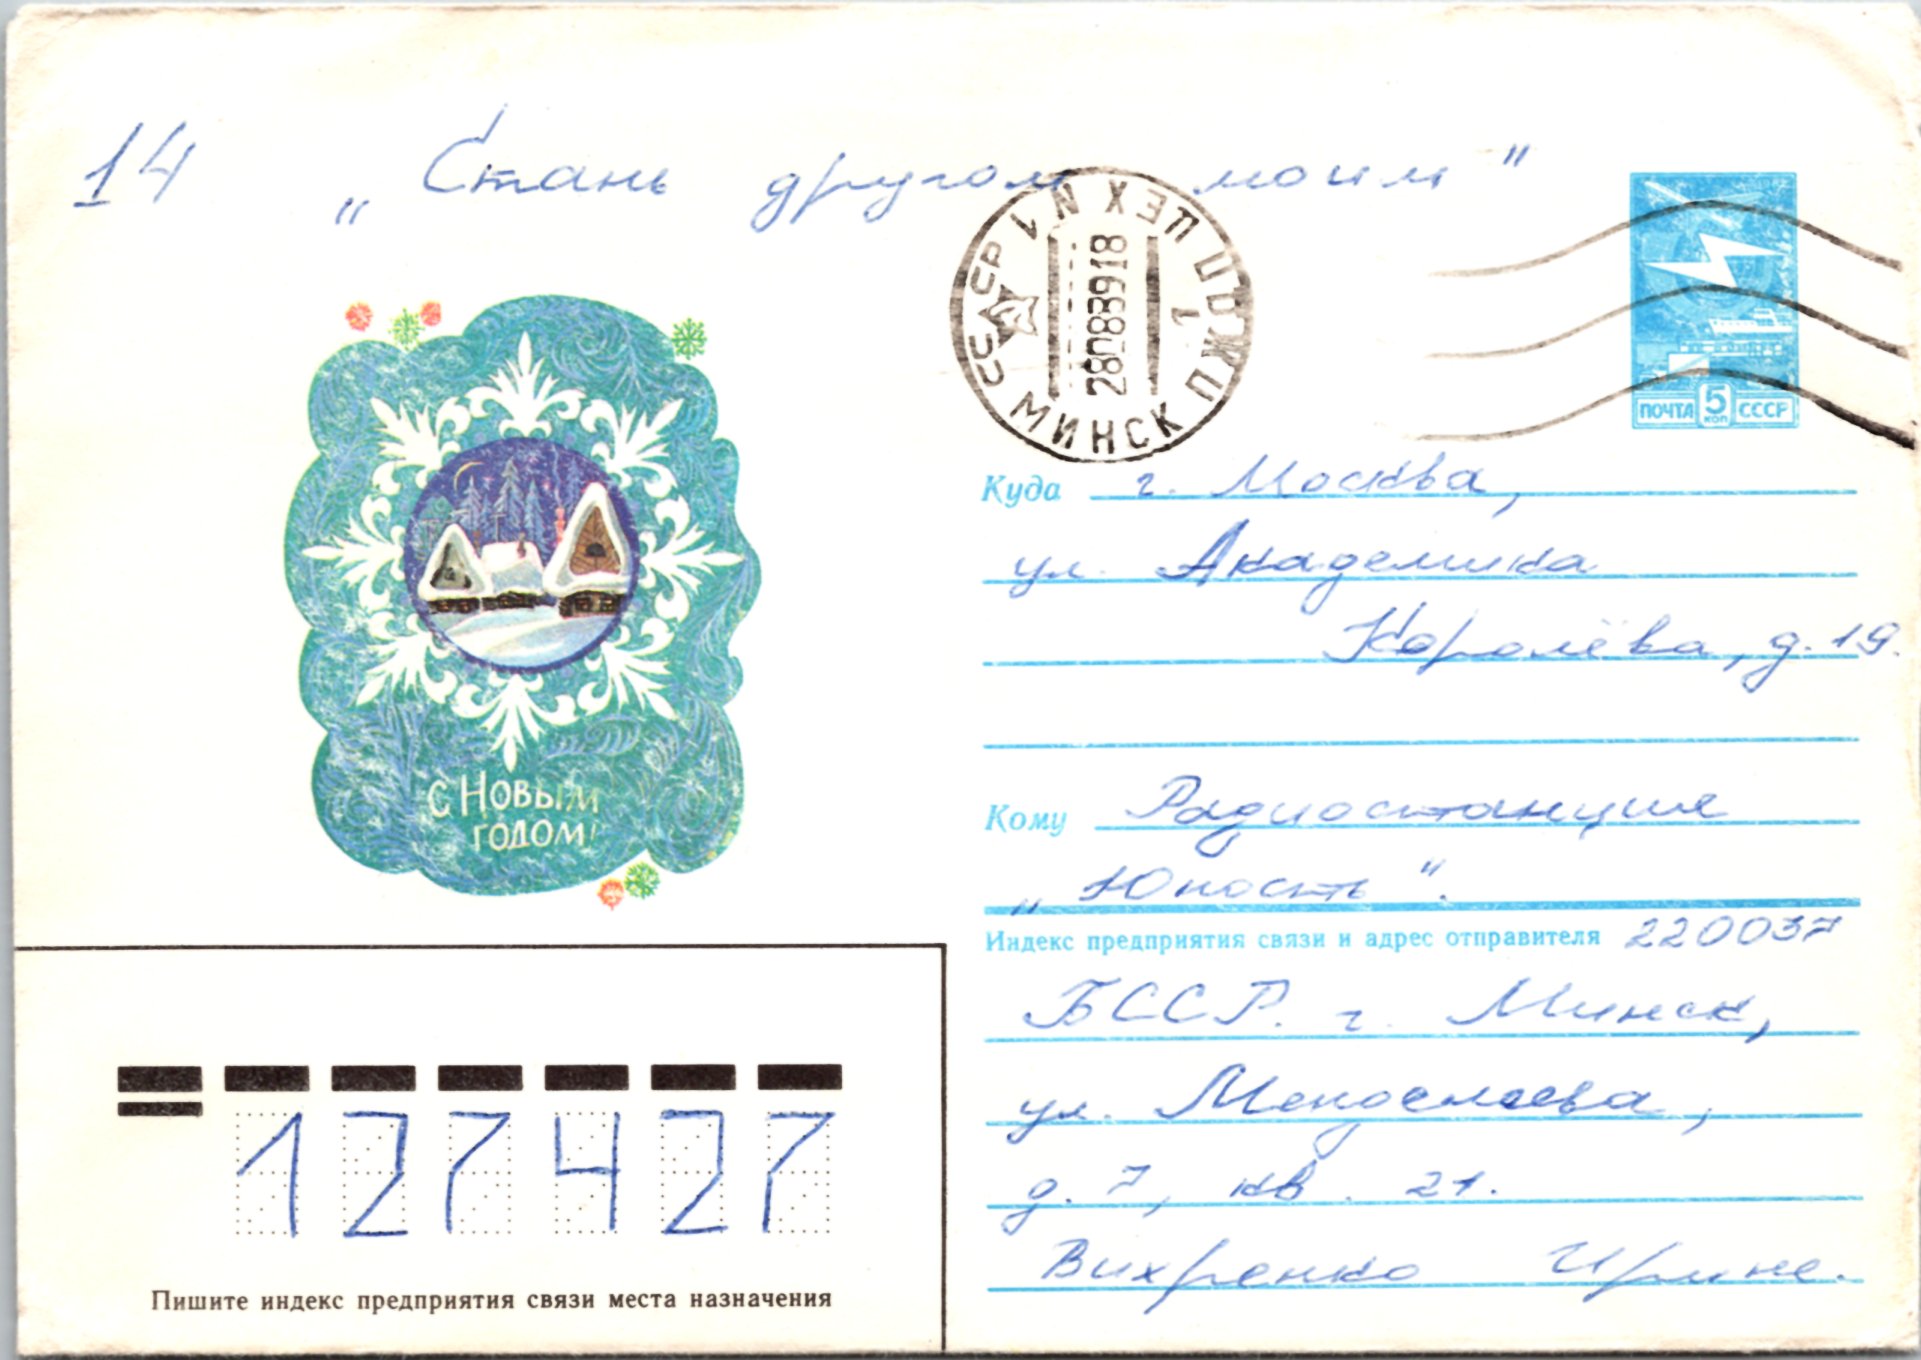 14 „Стань другом моим"
СССР МИНСК ПЖДП ЦЕХ N 1
1
280889 18
ПОЧТА 5 КОП СССР
С НОВЫМ
ГОДОМ!
Куда г. Москва,
ул. Академика
Королёва, д. 19.
Кому Радиостанция
„Юность".
Индекс предприятия связи и адрес отправителя 220037
БССР. г. Минск,
ул.
д. 7, кв. 21.
Вихренко Ирине.
127427
Пишите индекс предприятия связи места назначения